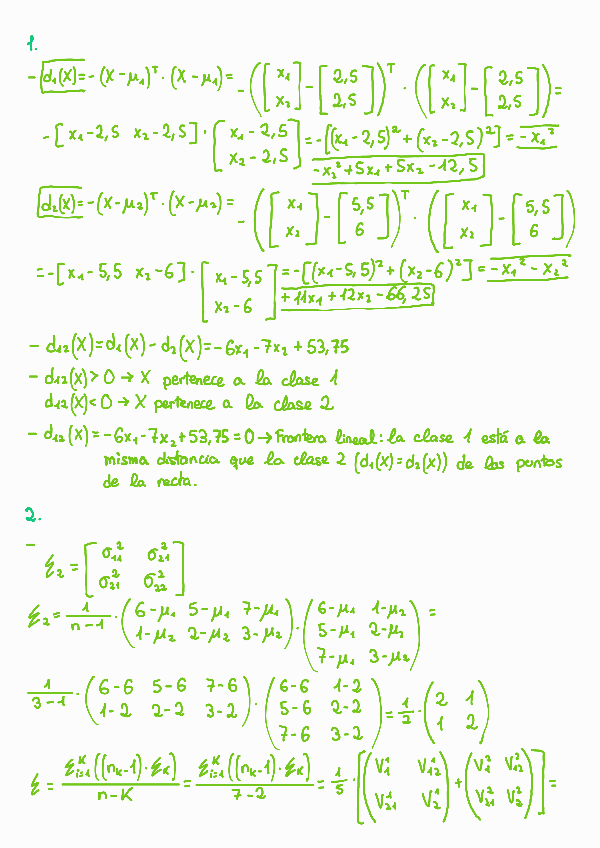 1.
- d₁(X) = -(X-μ₁)ᵀ · (X-μ₁) = -([x₁ x₂] - [2,5 2,5])ᵀ · ([x₁ x₂] - [2,5 2,5]) =
- [x₁-2,5 x₂-2,5] · [x₁-2,5 x₂-2,5] = -[(x₁-2,5)²+(x₂-2,5)²] = -x₁²
-x₂²+5x₁+5x₂-12,5
d₂(X) = -(X-μ₂)ᵀ · (X-μ₂) = -([x₁ x₂] - [5,5 6])ᵀ · ([x₁ x₂] - [5,5 6])
= -[x₁-5,5 x₂-6] · [x₁-5,5 x₂-6] = -[(x₁-5,5)²+(x₂-6)²] = -x₁²-x₂²
+11x₁+12x₂-66,25
- d₁₂(X) = d₁(X) - d₂(X) = -6x₁-7x₂+53,75
- d₁₂(X) > 0 → X pertenece a la clase 1
d₁₂(X) < 0 → X pertenece a la clase 2
- d₁₂(X) = -6x₁-7x₂+53,75 = 0 → Frontera lineal: la clase 1 está a la
misma distancia que la clase 2 (d₁(X) = d₂(X)) de los puntos
de la recta.
2.
- Σ₂ = [σ₁₁² σ₂₁² σ₂₁² σ₂₂²]
Σ₂ = 1/(n-1) · (6-μ₁ 5-μ₁ 7-μ₁ 1-μ₂ 2-μ₂ 3-μ₂) · (6-μ₁ 1-μ₂ 5-μ₁ 2-μ₂ 7-μ₁ 3-μ₂) =
1/(3-1) · (6-6 5-6 7-6 1-2 2-2 3-2) · (6-6 1-2 5-6 2-2 7-6 3-2) = 1/2 · (2 1 1 2)
Σ = Σᵢ₌₁ᴷ((nₖ-1)·Σₖ)/(n-K) = Σᵢ₌₁ᴷ((nₖ-1)·Σₖ)/(7-2) = 1/5 · [(V₁¹ V₁₂¹ V₂₁¹ V₂¹) + (V₁² V₁₂² V₂₁² V₂²)] =